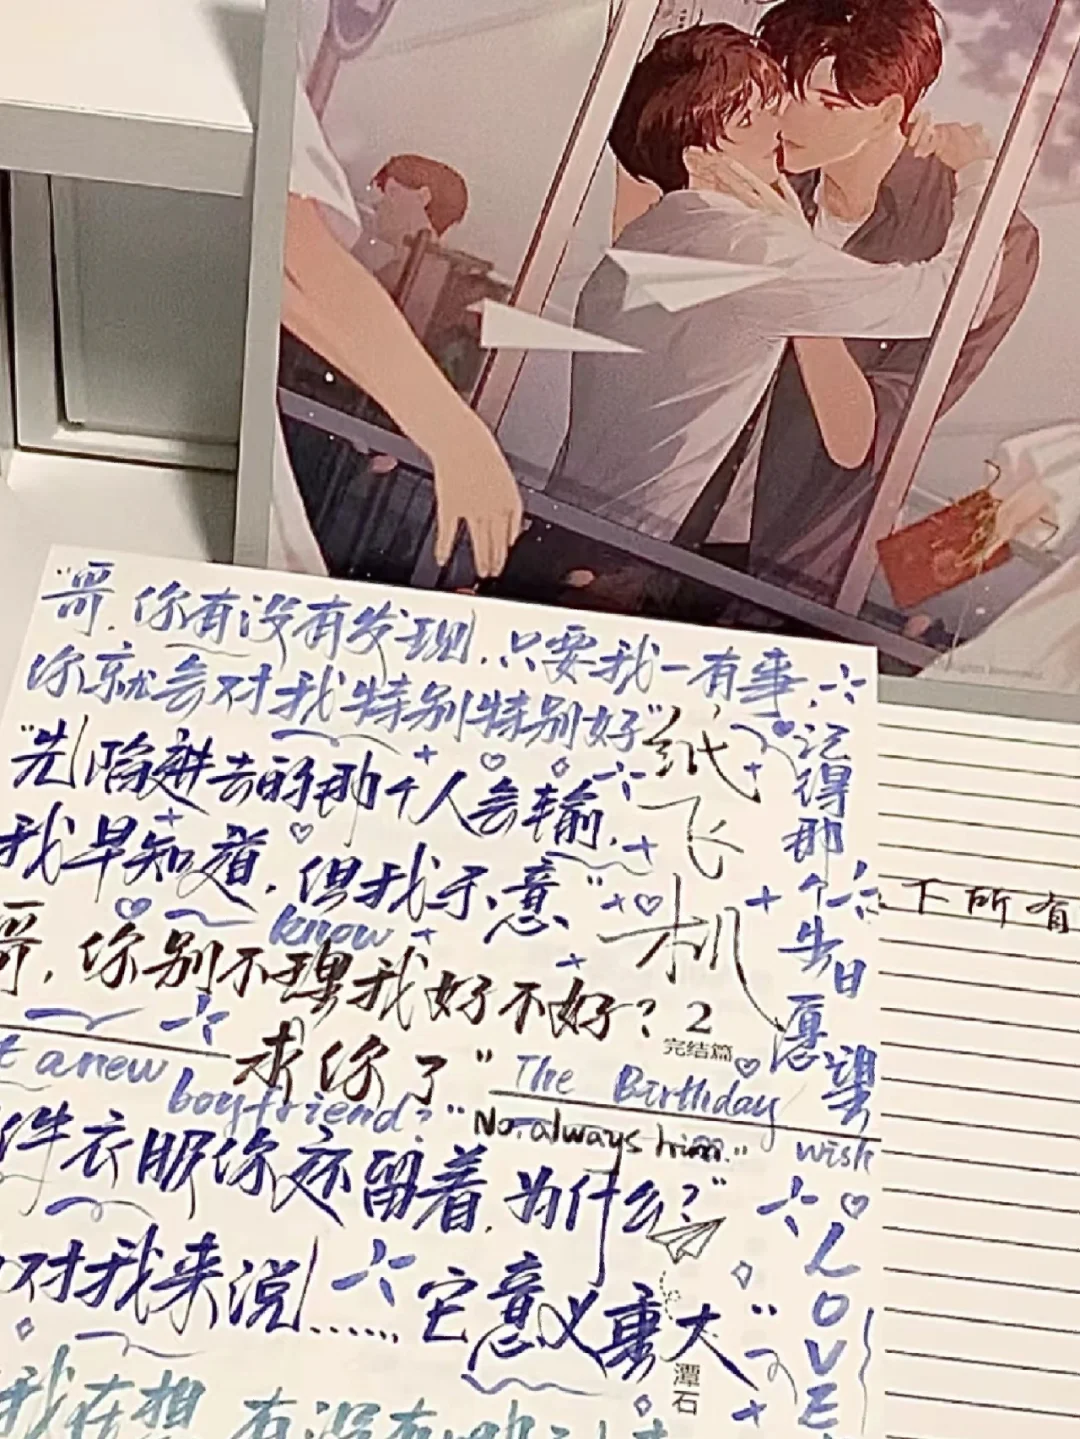 "哥,你有没有发现,只要我一有事,
你就会对我特别特别好"
"先陷进去的那个人会输,
我早知道,但我乐意"
know
哥,你别不理我好不好?
求你了"
t a new
boyfriend?"
"No, always him."
件衣服你还留着,为什么?"
对我来说……它意义重大"
我在想
纸飞机
2
完结篇
潭石
记得那个生日愿望
The Birthday
wish
LOVE
下所有